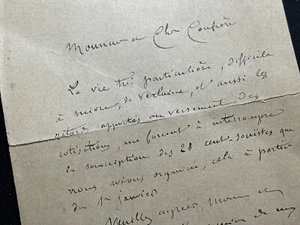 Monsieur et Cher Confrère
La vie très particulière, difficile
à suivre, de Verlaine, et aussi les
retards apportés au versement des
cotisations, me forcent à interrompre
la souscription des 28 cent sonistes que
nous avions organisée, cela à partir
du 1er janvier
Veuillez agréer,